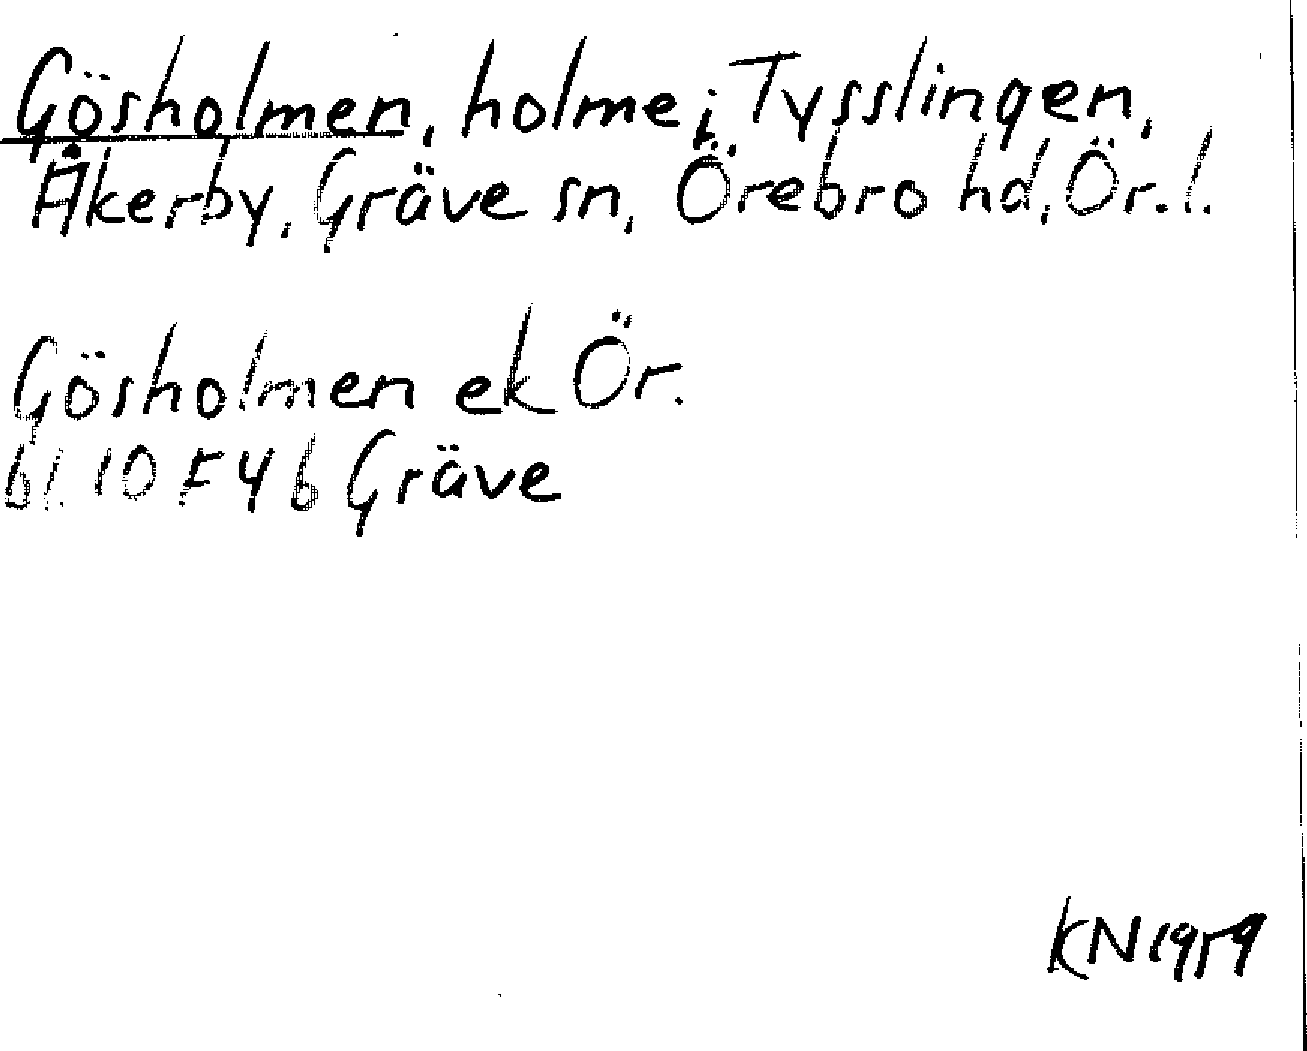 Gösholmen, holme i Tysslingen,
Åkerby, Gräve sn, Örebro hd, Ör. l.
Gösholmen ek Ör.
bl. 10 F 4 b Gräve
KN 1959